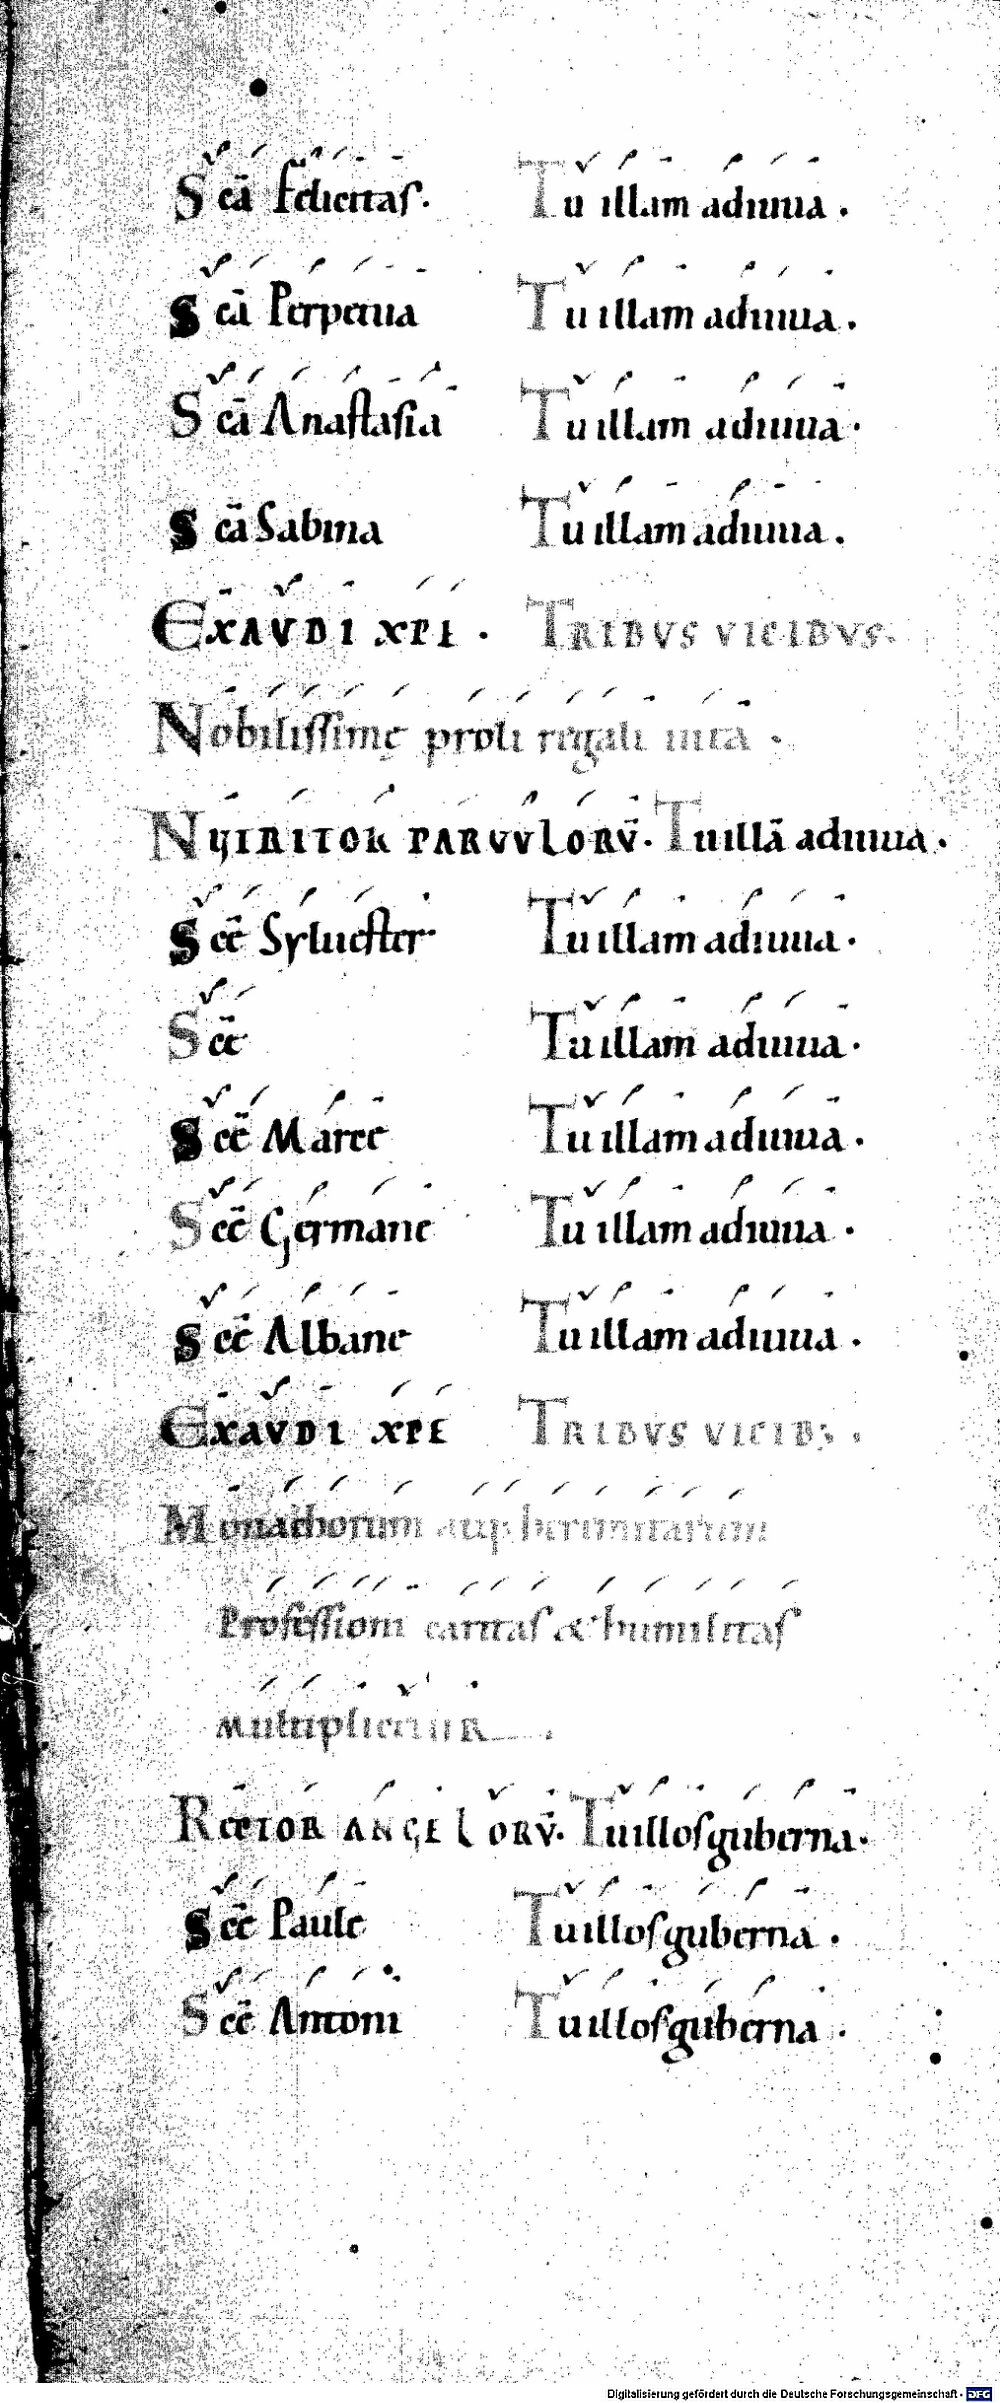 Scā Felicitas. Tu illam adiuua.
Scā Perpetua Tu illam adiuua.
Scā Anastasia Tu illam adiuua.
Scā Sabina Tu illam adiuua.
EXAVDI XPE. TRIBVS VICIBVS.
Nobilissimę proli regali uita.
NVTRITOR PARVVLORV̄. Tu illā adiuua.
Scē Syluester Tu illam adiuua.
Scē Tu illam adiuua.
Scē Marce Tu illam adiuua.
Scē Germane Tu illam adiuua.
Scē Albane Tu illam adiuua.
EXAVDI XPE TRIBVS VICIB;.
Monachorum atq; herimitarum
Professioni caritas & humilitas
multiplicetUR.
RECTOR ANGELORV̄. Tu illos guberna.
Scē Paule Tu illos guberna.
Scē Antoni Tu illos guberna.
Digitalisierung gefördert durch die Deutsche Forschungsgemeinschaft - DFG